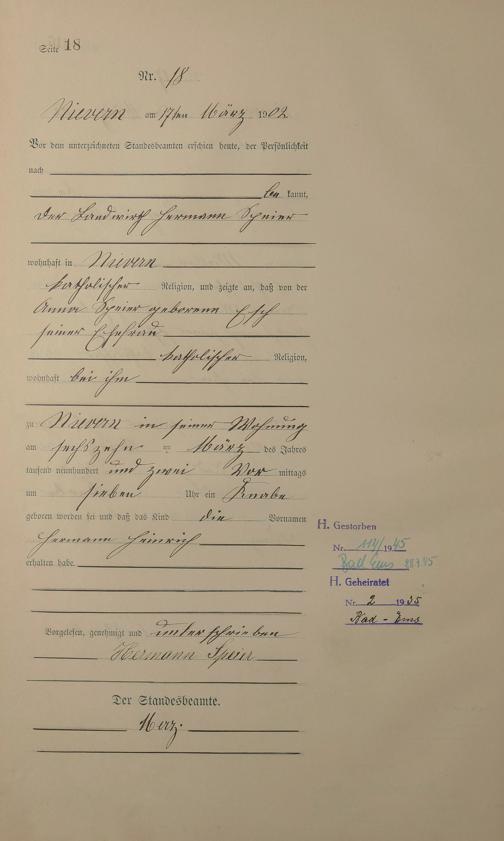 Seite 18
Nr. 18
Nievern am 17ten März 1902
Vor dem unterzeichneten Standesbeamten erschien heute, der Persönlichkeit
nach
be kannt,
der Landwirth Hermann Speier
wohnhaft in Nievern
katholischer Religion, und zeigte an, daß von der
Anna Speier geborenen Esch
seiner Ehefrau
katholischer Religion,
wohnhaft bei ihm
zu Nievern in seiner Wohnung
am sechszehn = März des Jahres
tausend neunhundert und zwei Vor mittags
um sieben Uhr ein Knabe
geboren worden sei und daß das Kind die Vornamen
Hermann Heinrich
erhalten habe.
H. Gestorben
Nr. 114/1945
Bad Ems
H. Geheiratet
Nr. 2 1935
Bad-Ems
Vorgelesen, genehmigt und unterschrieben
Hermann Speier
Der Standesbeamte.
Merz.